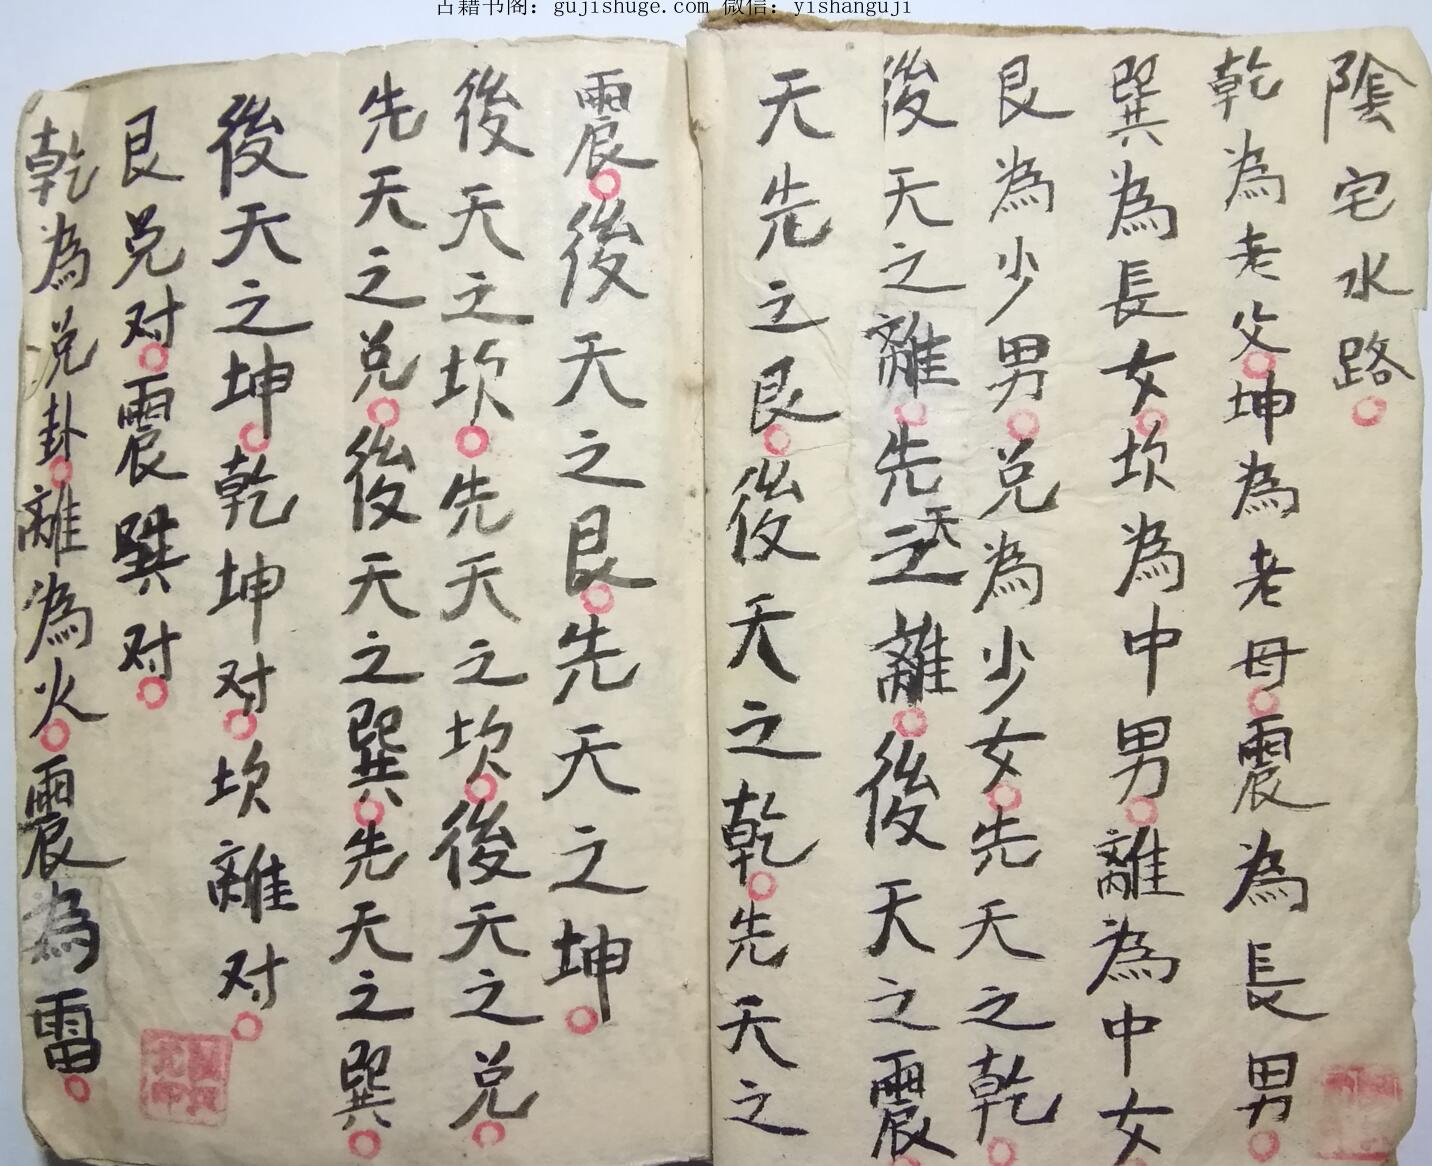 古籍书阁：gujishuge.com 微信：yishanguji
陰宅水路
乾為老父坤為老母震為長男
巽為長女坎為中男離為中女
艮為少男兑為少女先天之乾
後天之離先天之離後天之震
天先之艮後天之乾先天之
震後天之艮先天之坤
後天之坎先天之坎後天之兑
先天之兑後天之巽先天之巽
後天之坤乾坤对坎離对
艮兑对震巽对
乾為兑卦離為火震為雷